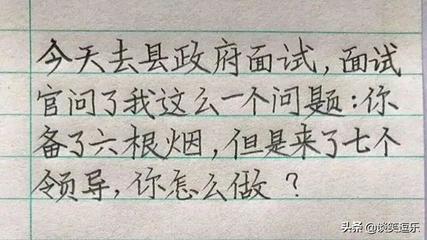 今天去县政府面试，面试
官问了我这么一个问题：你
备了六根烟，但是来了七个
领导，你怎么做？
头条@谈笑逗乐